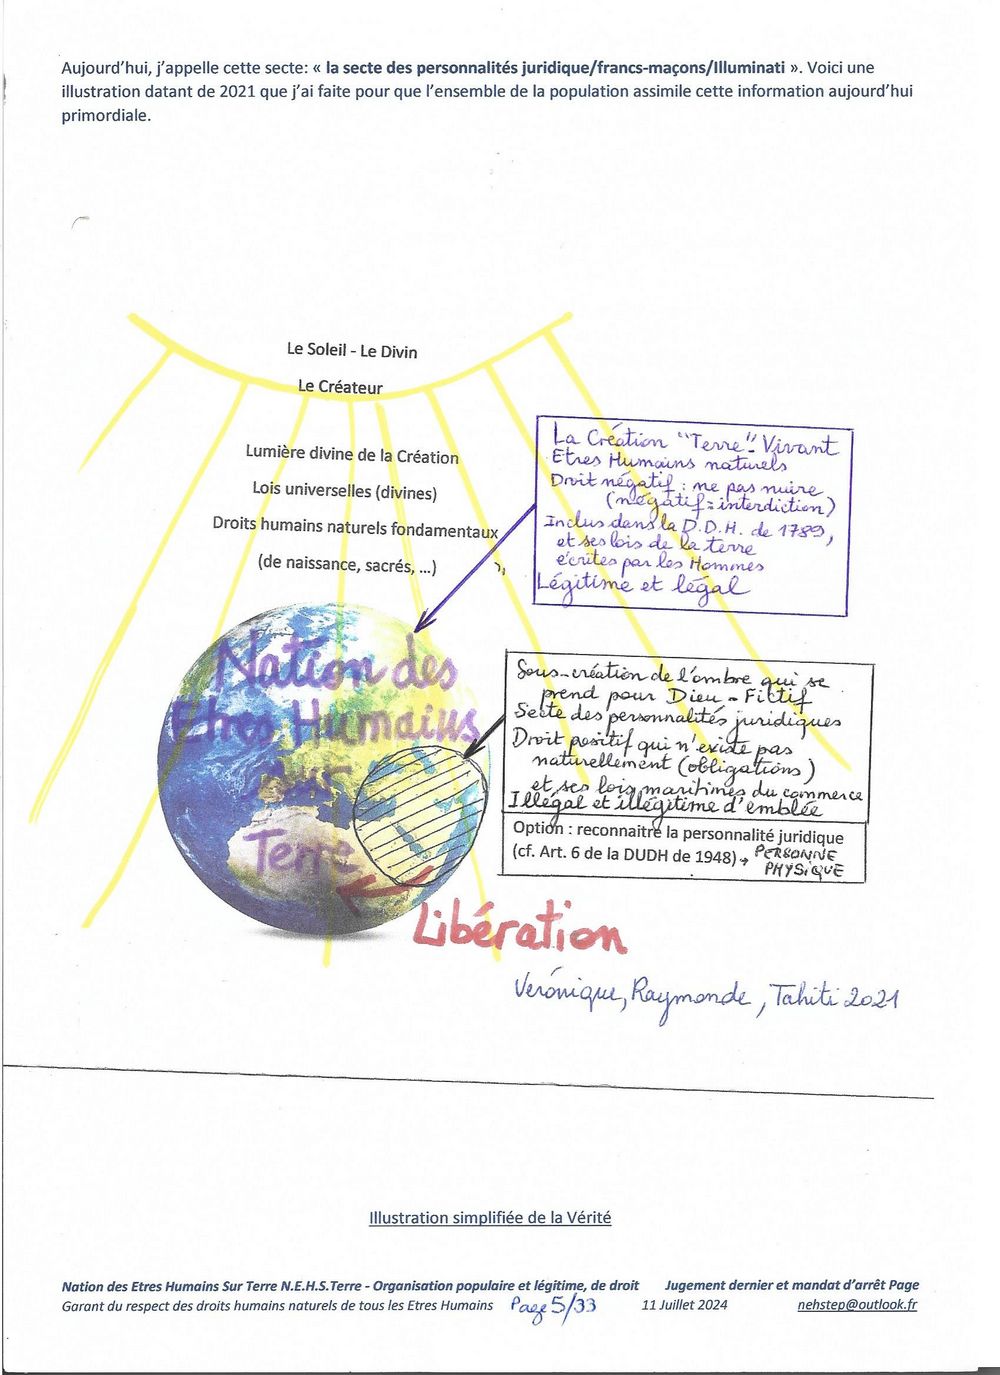 Aujourd'hui, j'appelle cette secte: « la secte des personnalités juridique/francs-maçons/Illuminati ». Voici une
illustration datant de 2021 que j'ai faite pour que l'ensemble de la population assimile cette information aujourd'hui
primordiale.
Le Soleil - Le Divin
Le Créateur
Lumière divine de la Création
Lois universelles (divines)
Droits humains naturels fondamentaux
(de naissance, sacrés, ...)
La Création "Terre" - Vivant
Etres Humains naturels
Droit négatif : ne pas nuire
(négatif = interdiction)
Inclus dans la D.D.H. de 1789,
et ses lois de la terre
écrites par les Hommes
Légitime et légal
Nation des
Etres Humains
sur
Terre
Sous-création de l'ombre qui se
prend pour Dieu - Fictif
Secte des personnalités juridiques
Droit positif qui n'existe pas
naturellement (obligations)
et ses lois maritimes du commerce
Illégal et illégitime d'emblée
Option : reconnaitre la personnalité juridique
(cf. Art. 6 de la DUDH de 1948) → PERSONNE
PHYSIQUE
Libération
Véronique, Raymonde, Tahiti 2021
Illustration simplifiée de la Vérité
Nation des Etres Humains Sur Terre N.E.H.S.Terre - Organisation populaire et légitime, de droit Jugement dernier et mandat d'arrêt Page
Garant du respect des droits humains naturels de tous les Etres Humains Page 5/33 11 Juillet 2024 nehstep@outlook.fr